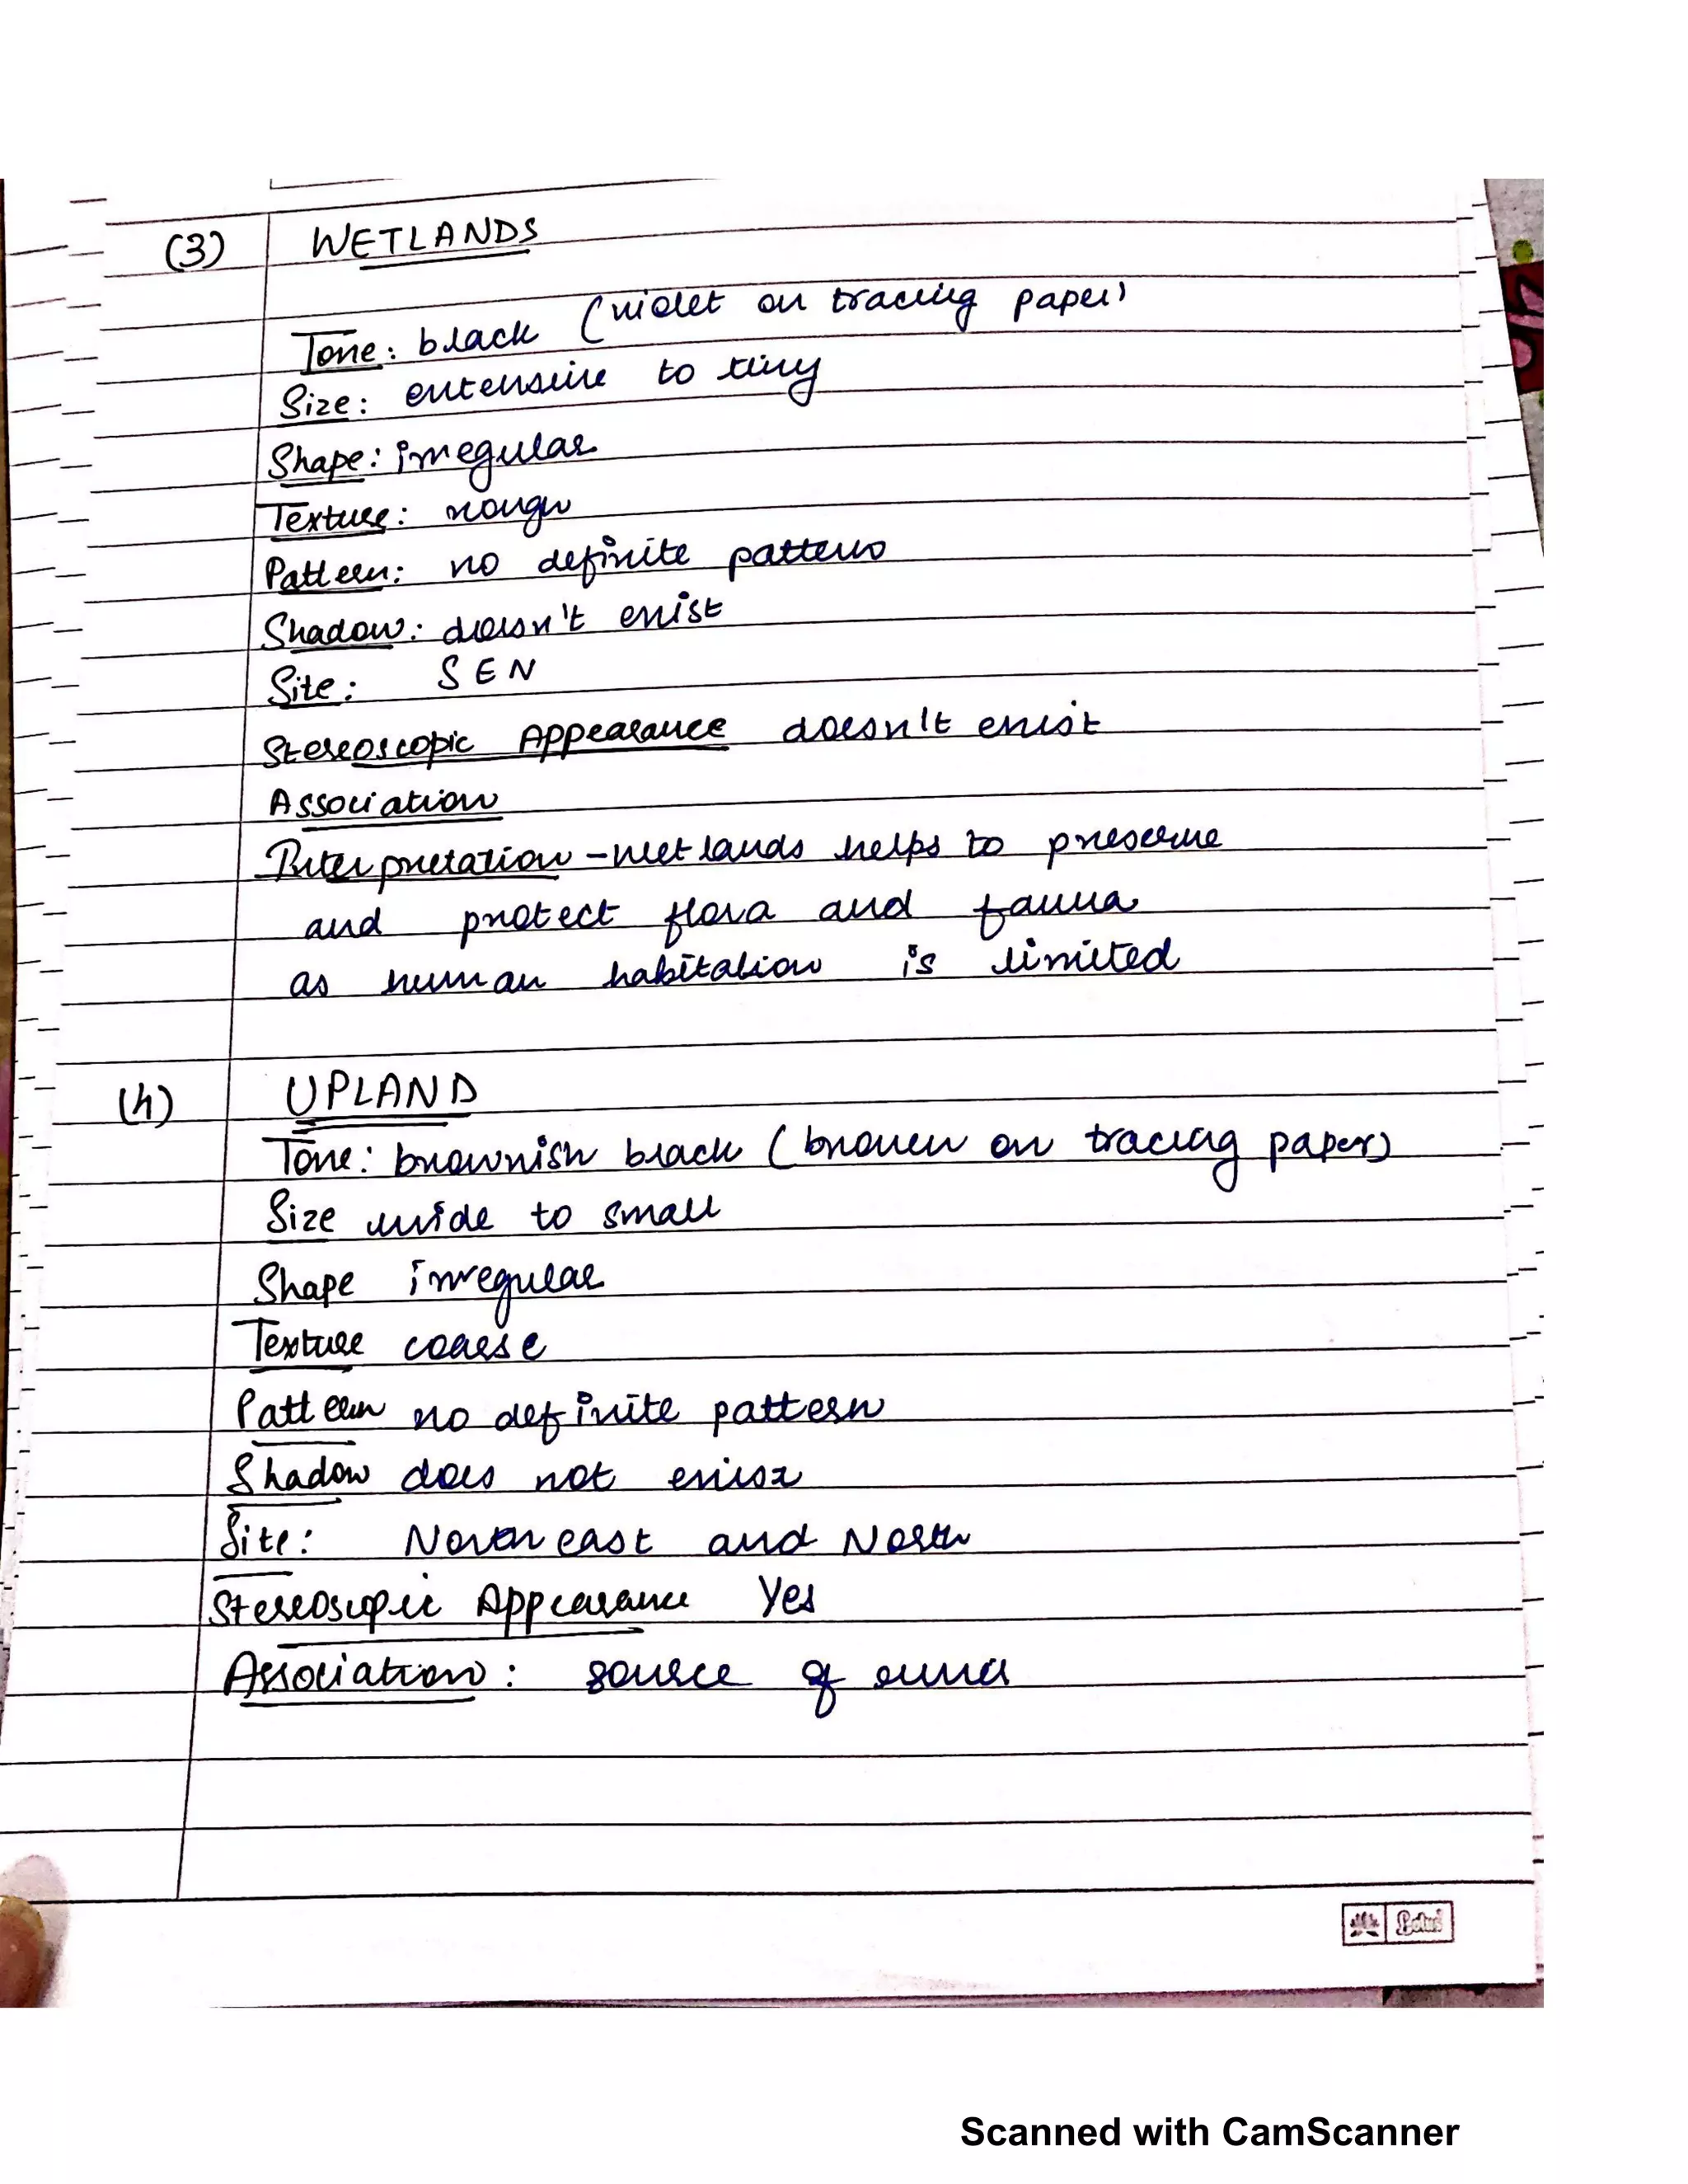 (3) WETLANDS
Tone: black (violet on tracing paper)
Size: extensive to tiny
Shape: irregular
Texture: rough
Pattern: no definite pattern
Shadow: doesn't exist
Site: S E N
Stereoscopic Appearance doesn't exist
Association
Interpretation - wetlands helps to preserve
and protect flora and fauna
as human habitation is limited
(4) UPLAND
Tone: brownish black (brown on tracing paper)
Size wide to small
Shape irregular
Texture coarse
Pattern no definite pattern
Shadow does not exist
Site: North east and North
Stereoscopic Appearance Yes
Association: source of
Lotus
Scanned with CamScanner